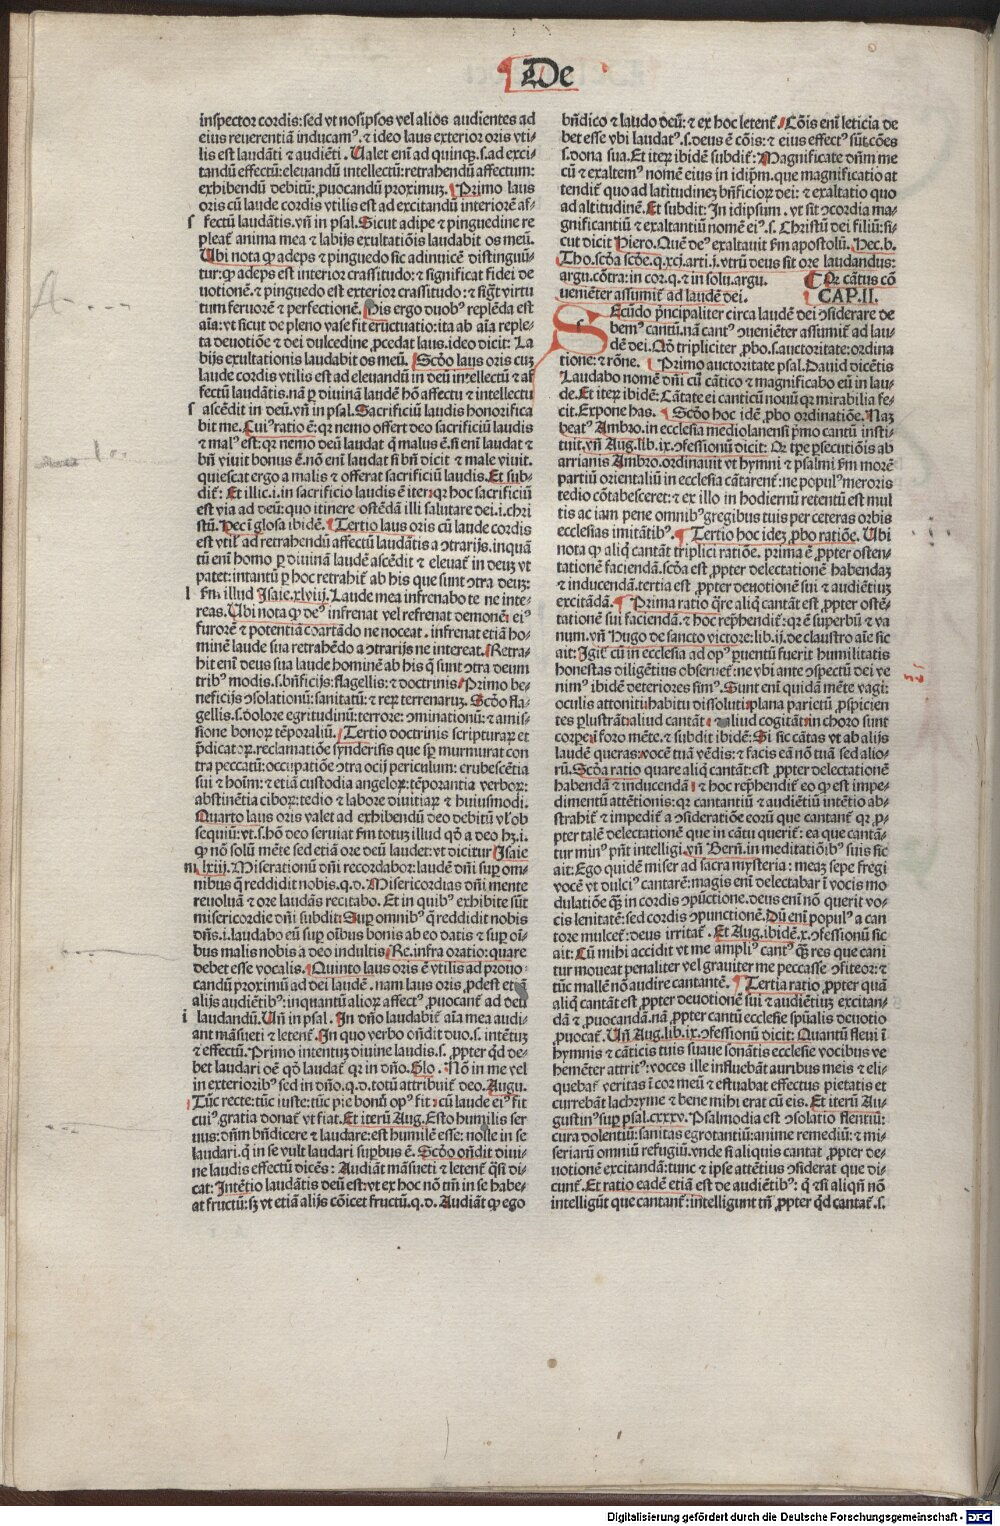 De
inspector cordis: sed vt nosipsos vel alios audientes ad
eius reuerentiā inducamꝰ. ⁊ ideo laus exterior oris vti-
lis est laudāti ⁊ audiēti. Ualet enī ad quinqꝫ. s. ad exci-
tandū effectū: eleuandū intellectū: retrahendū affectum:
exhibendū debitū: ꝓuocandū proximuꝫ. Primo laus
oris cū laude cordis vtilis est ad excitandū interiorē af-
s fectū laudātis. vñ in psal. Sicut adipe ⁊ pinguedine re
pleat̉ anima mea ⁊ labijs exultatiōis laudabit os meū.
Ubi nota ꝙ adeps ⁊ pinguedo sic adinuicē distinguū-
tur: ꝙ adeps est interior crassitudo: ⁊ significat fidei de
uotionē. ⁊ pinguedo est exterior crassitudo: ⁊ sigt̄ virtu
tum feruorē ⁊ perfectionē. His ergo duobꝰ replēda est
aīa: vt sicut de pleno vase fit eructuatio: ita ab aīa reple-
ta deuotiōe ⁊ dei dulcedine ꝓcedat laus. ideo dicit: La
bijs exultationis laudabit os meū. Scd̄o laus oris cuꝫ
laude cordis vtilis est ad eleuandū in deū intellectū ⁊ af
fectū laudātis. nā ꝑ diuinā laudē hō affectu ⁊ intellectu
s ascēdit in deū. vñ in psal. Sacrificiū laudis honorifica
bit me. Cuiꝰ ratio ē: qꝛ nemo offert deo sacrificiū laudis
⁊ malꝰ est: qꝛ nemo deū laudat qͥ malus ē. si enī laudat ⁊
bñ viuit bonus ē. nō enī laudat si bñ dicit ⁊ male viuit.
quiescat ergo a malis ⁊ offerat sacrificiū laudis. Et sub-
dit̉: Et illic. i. in sacrificio laudis ē iter: qꝛ hoc sacrificiū
est via ad deū: quo itinere ostēdā illi salutare dei. i. chri
stū. hec ī glosa ibidē. Tertio laus oris cū laude cordis
est vtilꝭ ad retrahendū affectū laudātis a ↄtrarijs. inquā
tū enī homo ꝑ diuinā laudē ascēdit ⁊ eleuat̉ in deuꝫ vt
patet: intantū ꝑ hoc retrahit̉ ab his que sunt ↄtra deuꝫ:
l fm̄. illud Isaie. xlviij. Laude mea infrenabo te ne inte-
reas. Ubi nota ꝙ deꝰ infrenat vel refrenat demonē: eiꝰ
furorē ⁊ potentiā coartādo ne noceat. infrenat etiā ho-
minē laude sua retrahēdo a ↄtrarijs ne intereat. Retra-
hit enī deus sua laude hominē ab his q̄ sunt ↄtra deum
tribꝰ modis. s. bñficijs: flagellis: ⁊ doctrinis. Primo be-
neficijs ↄsolationū: sanitatū: ⁊ reꝝ terrenaruꝫ. Scd̄o fla-
gellis. s. dolore egritudinū: terrore: ↄminationū: ⁊ amis-
sione bonoꝝ tēporaliū. Tertio doctrinis scripturaꝝ et
p̄dicatoꝝ. reclamatiōe synderisis que sp̄ murmurat con
tra peccatū: occupatiōe ↄtra ocij periculum: erubescētia
sui ⁊ hoīm: ⁊ etiā custodia angeloꝝ: tēporantia verboꝝ:
abstinētia ciboꝝ: tedio ⁊ labore diuitiaꝝ ⁊ huiusmodi.
Quarto laus oris valet ad exhibendū deo debitū vl̓ ob
sequiū: vt. s. hō deo seruiat fm̄ totuꝫ illud qd̄ a deo hꝫ. i.
ꝙ nō solū mēte sed etiā ore deū laudet: vt dicitur Isaie
m lxiij. Miserationū dn̄i recordabor: laudē dn̄i suꝑ om-
nibus q̄ reddidit nobis. q. d. Misericordias dn̄i mente
reuoluā ⁊ ore laudās recitabo. Et in quibꝰ exhibite sūt
misericordie dn̄i subdit: Suꝑ omnibꝰ q̄ reddidit nobis
dn̄s. i. laudabo eū suꝑ oībus bonis ab eo datis ⁊ suꝑ oī-
bus malis nobis a deo indultis. Re. infra oratio: quare
debet esse vocalis. Quinto laus oris ē vtilis ad prouo-
candū proximū ad dei laudē. nam laus oris ꝓdest etiā
alijs audiētibꝰ: inquantū alioꝝ affectꝰ ꝓuocant̉ ad deū
i laudandū. Uñ in psal. In dn̄o laudabit̉ aīa mea audi-
ant māsueti ⁊ letent̉. In quo verbo oñdit duo. s. intētuꝫ
⁊ effectū. Primo intentuꝫ diuine laudis. s. ꝓpter qd̄ de-
bet laudari oē qd̄ laudat̉ qꝛ in dn̄o. Glo. Nō in me vel
in exterioribꝰ sed in dn̄o. q. d. totū attribuit̉ deo. Augu.
Tūc recte: tūc iuste: tūc pie bonū opꝰ fit: cū laude eiꝰ fit
cuiꝰ gratia donat̉ vt fiat. Et iterū Aug. Esto humilis ser
uus: dn̄m bn̄dicere ⁊ laudare: est humilē esse: nolle in se
laudari. qͥ in se vult laudari suꝑbus ē. Scd̄o oñdit diui-
ne laudis effectū dicēs: Audiāt māsueti ⁊ letent̉ q̄si di-
cat: Intētio laudātis deū est: vt ex hoc nō tm̄ in se habe-
at fructū: sꝫ vt etiā alijs cōicet fructū. q. d. Audiāt ꝙ ego
bn̄dico ⁊ laudo deū: ⁊ ex hoc letent̉. Cōis enī leticia de
bet esse vbi laudat̉. s. deus ē cōis: ⁊ eius effectꝰ sūt cōes
s. dona sua. Et iteꝝ ibidē subdit̉: Magnificate dn̄m me
cū ⁊ exaltemꝰ nomē eius in idip̄m. que magnificatio at
tendit̉ quo ad latitudineꝫ bn̄ficioꝝ dei: ⁊ exaltatio quo
ad altitudinē. Et subdit: In idipsum. vt sit ↄcordia ma-
gnificantiū ⁊ exaltantiū nomē eiꝰ. s. Christū dei filiū: si-
cut dicit Piero. Quē deꝰ exaltauit fm̄ apostolū. Hec. b.
Tho. scd̄a scd̄e. q. xcj. arti. j. vtrū deus sit ore laudandus:
argu. cōtra: in cor. q. ⁊ in solu. argu. Qꝛ cātus cō
ueniēter assumit̉ ad laudē dei. CAP. II.
SEcūdo p̄ncipaliter circa laudē dei ↄsiderare de
bemꝰ cantū. nā cantꝰ ↄueniēter assumit̉ ad lau-
dē dei. Qd̄ tripliciter ꝓbo. s. auctoritate: ordina
tione: ⁊ rōne. Primo auctoritate psal. Dauid dicētis
Laudabo nomē dn̄i cū cātico ⁊ magnificabo eū in lau-
de. Et iteꝝ ibidē: Cātate ei canticū nouū qꝛ mirabilia fe-
cit. Expone has. Scd̄o hoc idē ꝓbo ordinatiōe. Naꝫ
beatꝰ Ambro. in ecclesia mediolanensi p̄mo cantū insti-
tuit. vñ Aug. lib. ix. ↄfessionū dicit: Qꝛ tp̄e ꝑsecutiōis ab
arrianis Ambro. ordinauit vt hymni ⁊ psalmi fm̄ morē
partiū orientaliū in ecclesia cātarent̉: ne populꝰ meroris
tedio cōtabesceret: ⁊ ex illo in hodiernū retentū est mul
tis ac iam pene omnibꝰ gregibus tuis per ceteras orbis
ecclesias imitātibꝰ. Tertio hoc ideꝫ ꝓbo ratiōe. Ubi
nota ꝙ aliq̄ cantāt triplici ratiōe. prima ē ꝓpter osten-
tationē faciendā. scd̄a est ꝓpter delectationē habendaꝫ
⁊ inducendā. tertia est ꝓpter deuotionē sui ⁊ audiētiuꝫ
excitādā. Prima ratio q̄re aliq̄ cantāt est ꝓpter ostē-
tationē sui faciendā. ⁊ hoc rep̄hendit̉: qꝛ ē superbū ⁊ va
num. vñ Hugo de sancto victore: lib. ij. de claustro aīe sic
ait: Igit̉ cū in ecclesia ad opꝰ ꝓuentū fuerit humilitatis
honestas diligētius obseruet̉: ne vbi ante ↄspectū dei ve
nimꝰ ibidē deteriores simꝰ. Sunt enī quidā mēte vagi:
oculis attoniti: habitu dissoluti: plana parietū ꝓspicien
tes ꝑlustrāt: aliud cantāt: aliud cogitāt: in choro sunt
corpe: ī foro mēte. ⁊ subdit ibidē: Si sic cātas vt ab alijs
laudē queras: vocē tuā vēdis: ⁊ facis eā nō tuā sed alio-
rū. Scd̄a ratio quare aliq̄ cantāt: est ꝓpter delectationē
habendā ⁊ inducendā: ⁊ hoc rep̄hēdit̉ eo ꝙ est impe-
dimentū attētionis: qꝛ cantantiū ⁊ audiētiū intētio ab-
strahit̉ ⁊ impedit̉ a ↄsideratiōe eorū que cantant̉ qꝛ ꝓ-
pter talē delectationē que in cātu querit̉: ea que cantā-
tur minꝰ pn̄t intelligi. vñ Bern̄. in meditatiōibꝰ suis sic
ait: Ego quidē miser ad sacra mysteria: meaꝫ sepe fregi
vocē vt dulciꝰ cantarē: magis enī delectabar ī vocis mo
dulatiōe qͣꝫ in cordis ↄpūctione. deus enī nō querit vo-
cis lenitatē: sed cordis ↄpunctionē. Dū enī populꝰ a can
tore mulcet̉: deus irritat̉. Et Aug. ibidē. x. ↄfessionū sic
ait: Cū mihi accidit vt me ampliꝰ cantꝰ qͣꝫ res que cani
tur moueat penaliter vel grauiter me peccasse ↄfiteor: ⁊
tūc mallē nō audire cantantē. Tertia ratio ꝓpter quā
aliq̄ cantāt est ꝓpter deuotionē sui ⁊ audiētiuꝫ excitan-
dā ⁊ ꝓuocandā. nā ꝓpter cantū ecclesie spūalis deuotio
ꝓuocat̉. Uñ Aug. lib. ix. ↄfessionū dicit: Quantū fleui ī
hymnis ⁊ cāticis tuis suaue sonātis ecclesie vocibus ve
hemēter attritꝰ: voces ille influebāt auribus meis ⁊ eli-
quebat̉ veritas ī cor meū ⁊ estuabat effectus pietatis et
currebāt lachryme ⁊ bene mihi erat cū eis. Et iterū Au-
gustinꝰ suꝑ psal. cxxxv. Psalmodia est ↄsolatio flentiū:
cura dolentiū: sanitas egrotantiū: anime remediū: ⁊ mi-
seriarū omniū refugiū. vnde si aliquis cantat ꝓpter de-
uotionē excitandā: tunc ⁊ ipse attētius ↄsiderat que di-
cunt̉. Et ratio eadē etiā est de audiētibꝰ: qͥ ⁊ si aliqn̄ nō
intelligūt que cantant̉: intelligunt tn̄ ꝓpter qd̄ cantat̉. s.
Digitalisierung gefördert durch die Deutsche Forschungsgemeinschaft - DFG